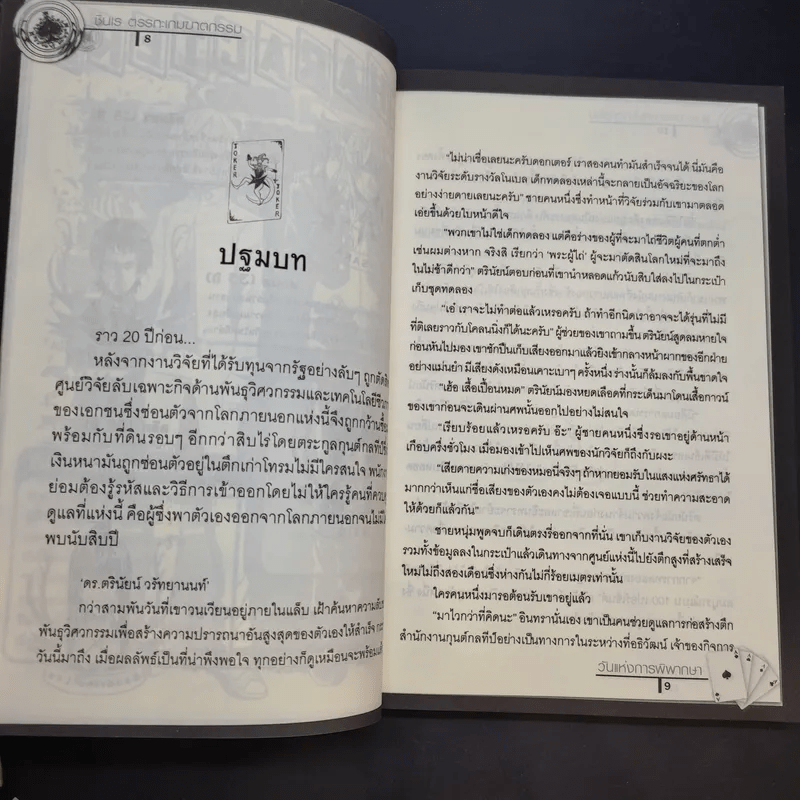 ชินเร ตรรกะเกมฆาตกรรม
8
JOKER
JOKER
ปฐมบท
ราว 20 ปีก่อน...
หลังจากงานวิจัยที่ได้รับทุนจากรัฐอย่างลับๆ ถูกตัด
ศูนย์วิจัยลับเฉพาะกิจด้านพันธุวิศวกรรมและเทคโนโลยี
ของเอกชนซึ่งซ่อนตัวจากโลกภายนอกแห่งนี้จึงถูกกว้าน
พร้อมกับที่ดินรอบๆ อีกกว่าสิบไร่โดยตระกูลกุนต์กลที
เงินหนามันถูกซ่อนตัวอยู่ในตึกเก่าโทรมไม่มีใครสนใจ
ย่อมต้องรู้รหัสและวิธีการเข้าออกโดยไม่ให้ใครรู้คนที่
ดูแลที่แห่งนี้ คือผู้ซึ่งพาตัวเองออกจากโลกภายนอกจนไม่มี
พบนับสิบปี
‘ดร.ตรินัยน์ วรัทยานนท์’
กว่าสามพันวันที่เขาวนเวียนอยู่ภายในแล็บ เฝ้าค้นหาความ
พันธุวิศวกรรมเพื่อสร้างความปรารถนาอันสูงสุดของตัวเองให้สำเร็จ
วันนี้มาถึง เมื่อผลลัพธ์เป็นที่น่าพึงพอใจ ทุกอย่างก็ดูเหมือนจะพร้อม
“ไม่น่าเชื่อเลยนะครับดอกเตอร์ เราสองคนทำมันสำเร็จจนได้ นี่มันคือ
งานวิจัยระดับรางวัลโนเบล เด็กทดลองเหล่านี้จะกลายเป็นอัจฉริยะของโลก
อย่างง่ายดายเลยนะครับ” ชายคนหนึ่งซึ่งทำหน้าที่วิจัยร่วมกับเขามาตลอด
เอ่ยขึ้นด้วยใบหน้าดีใจ
“พวกเขาไม่ใช่เด็กทดลอง แต่คือร่างของผู้ที่จะมาไถ่ชีวิตผู้คนที่ตกต่ำ
เช่นผมต่างหาก จริงสิ เรียกว่า ‘พระผู้ไถ่’ ผู้จะมาตัดสินโลกใหม่ที่จะมาถึง
ในไม่ช้าดีกว่า” ตรินัยน์ตอบก่อนที่เขานำหลอดแก้วนับสิบใส่ลงไปในกระเป๋า
เก็บชุดทดลอง
“เอ๋ เราจะไม่ทำต่อแล้วเหรอครับ ถ้าทำอีกนิดเราอาจจะได้รุ่นที่ไม่มี
ที่ติเลยราวกับโคลนนิ่งก็ได้นะครับ” ผู้ช่วยของเขาถามขึ้น ตรินัยน์สูดลมหายใจ
ก่อนหันไปมอง เขาชักปืนเก็บเสียงออกมาแล้วยิงเข้ากลางหน้าผากของอีกฝ่าย
อย่างแม่นยำ มีเสียงดังเหมือนเคาะเบาๆ ครั้งหนึ่ง ร่างนั้นก็ล้มลงกับพื้นขาดใจ
“เฮ้อ เสื้อเปื้อนหมด” ตรินัยน์มองหยดเลือดที่กระเด็นมาโดนเสื้อกาวน์
ของเขาก่อนจะเดินผ่านศพนั้นออกไปอย่างไม่สนใจ
“เรียบร้อยแล้วเหรอครับ อ๊ะ” ผู้ชายคนหนึ่งซึ่งรอเขาอยู่ด้านหน้า
เกือบครึ่งชั่วโมง เมื่อมองเข้าไปเห็นศพของนักวิจัยก็ถึงกับผงะ
“เสียดายความเก่งของหมอนี่จริงๆ ถ้าหากยอมรับในแสงแห่งศรัทธาได้
มากกว่าเห็นแก่ชื่อเสียงของตัวเองคงไม่ต้องเจอแบบนี้ ช่วยทำความสะอาด
ให้ด้วยก็แล้วกัน”
ชายหนุ่มพูดจบก็เดินตรงรี่ออกจากที่นั่น เขาเก็บงานวิจัยของตัวเอง
รวมทั้งข้อมูลลงในกระเป๋าแล้วเดินทางจากศูนย์แห่งนี้ไปยังตึกสูงที่สร้างเสร็จ
ใหม่ไม่ถึงสองเดือนซึ่งห่างกันไม่กี่ร้อยเมตรเท่านั้น
ใครคนหนึ่งมารอต้อนรับเขาอยู่แล้ว
“มาไวกว่าที่คิดนะ” อินทรานั่นเอง เขาเป็นคนช่วยดูแลการก่อสร้างตึก
สำนักงานกุนต์กลทีป์อย่างเป็นทางการในระหว่างที่อธิวัฒน์ เจ้าของกิจการ
วันแห่งการพิพากษา
9